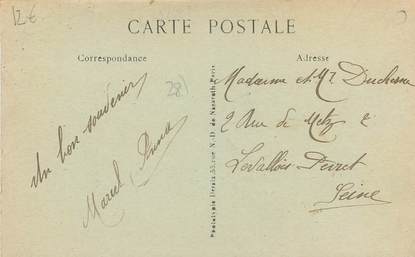 12€
CARTE POSTALE
Correspondance
Adresse
28)
Un bon souvenir
Marcel, Anna
Madame et Mr Duchesne
2 Rue de Metz 2
Levallois Perret
Seine
Phototypie Heralé, 33, rue N.-D. de Nazareth, Paris